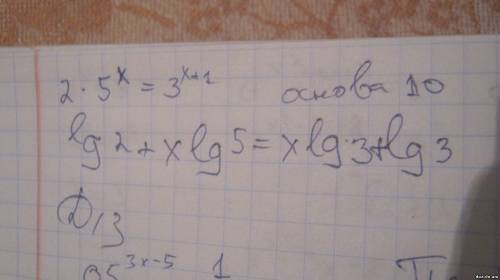 2 · 5^x = 3^(x+1) основа 10
lg 2 + x lg 5 = x lg 3 + lg 3
D/з
3x-5 1